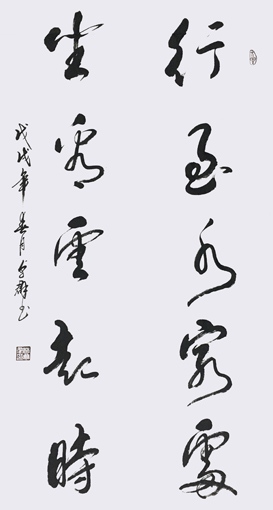 行到水窮處
坐看雲起時
戊戌年春月